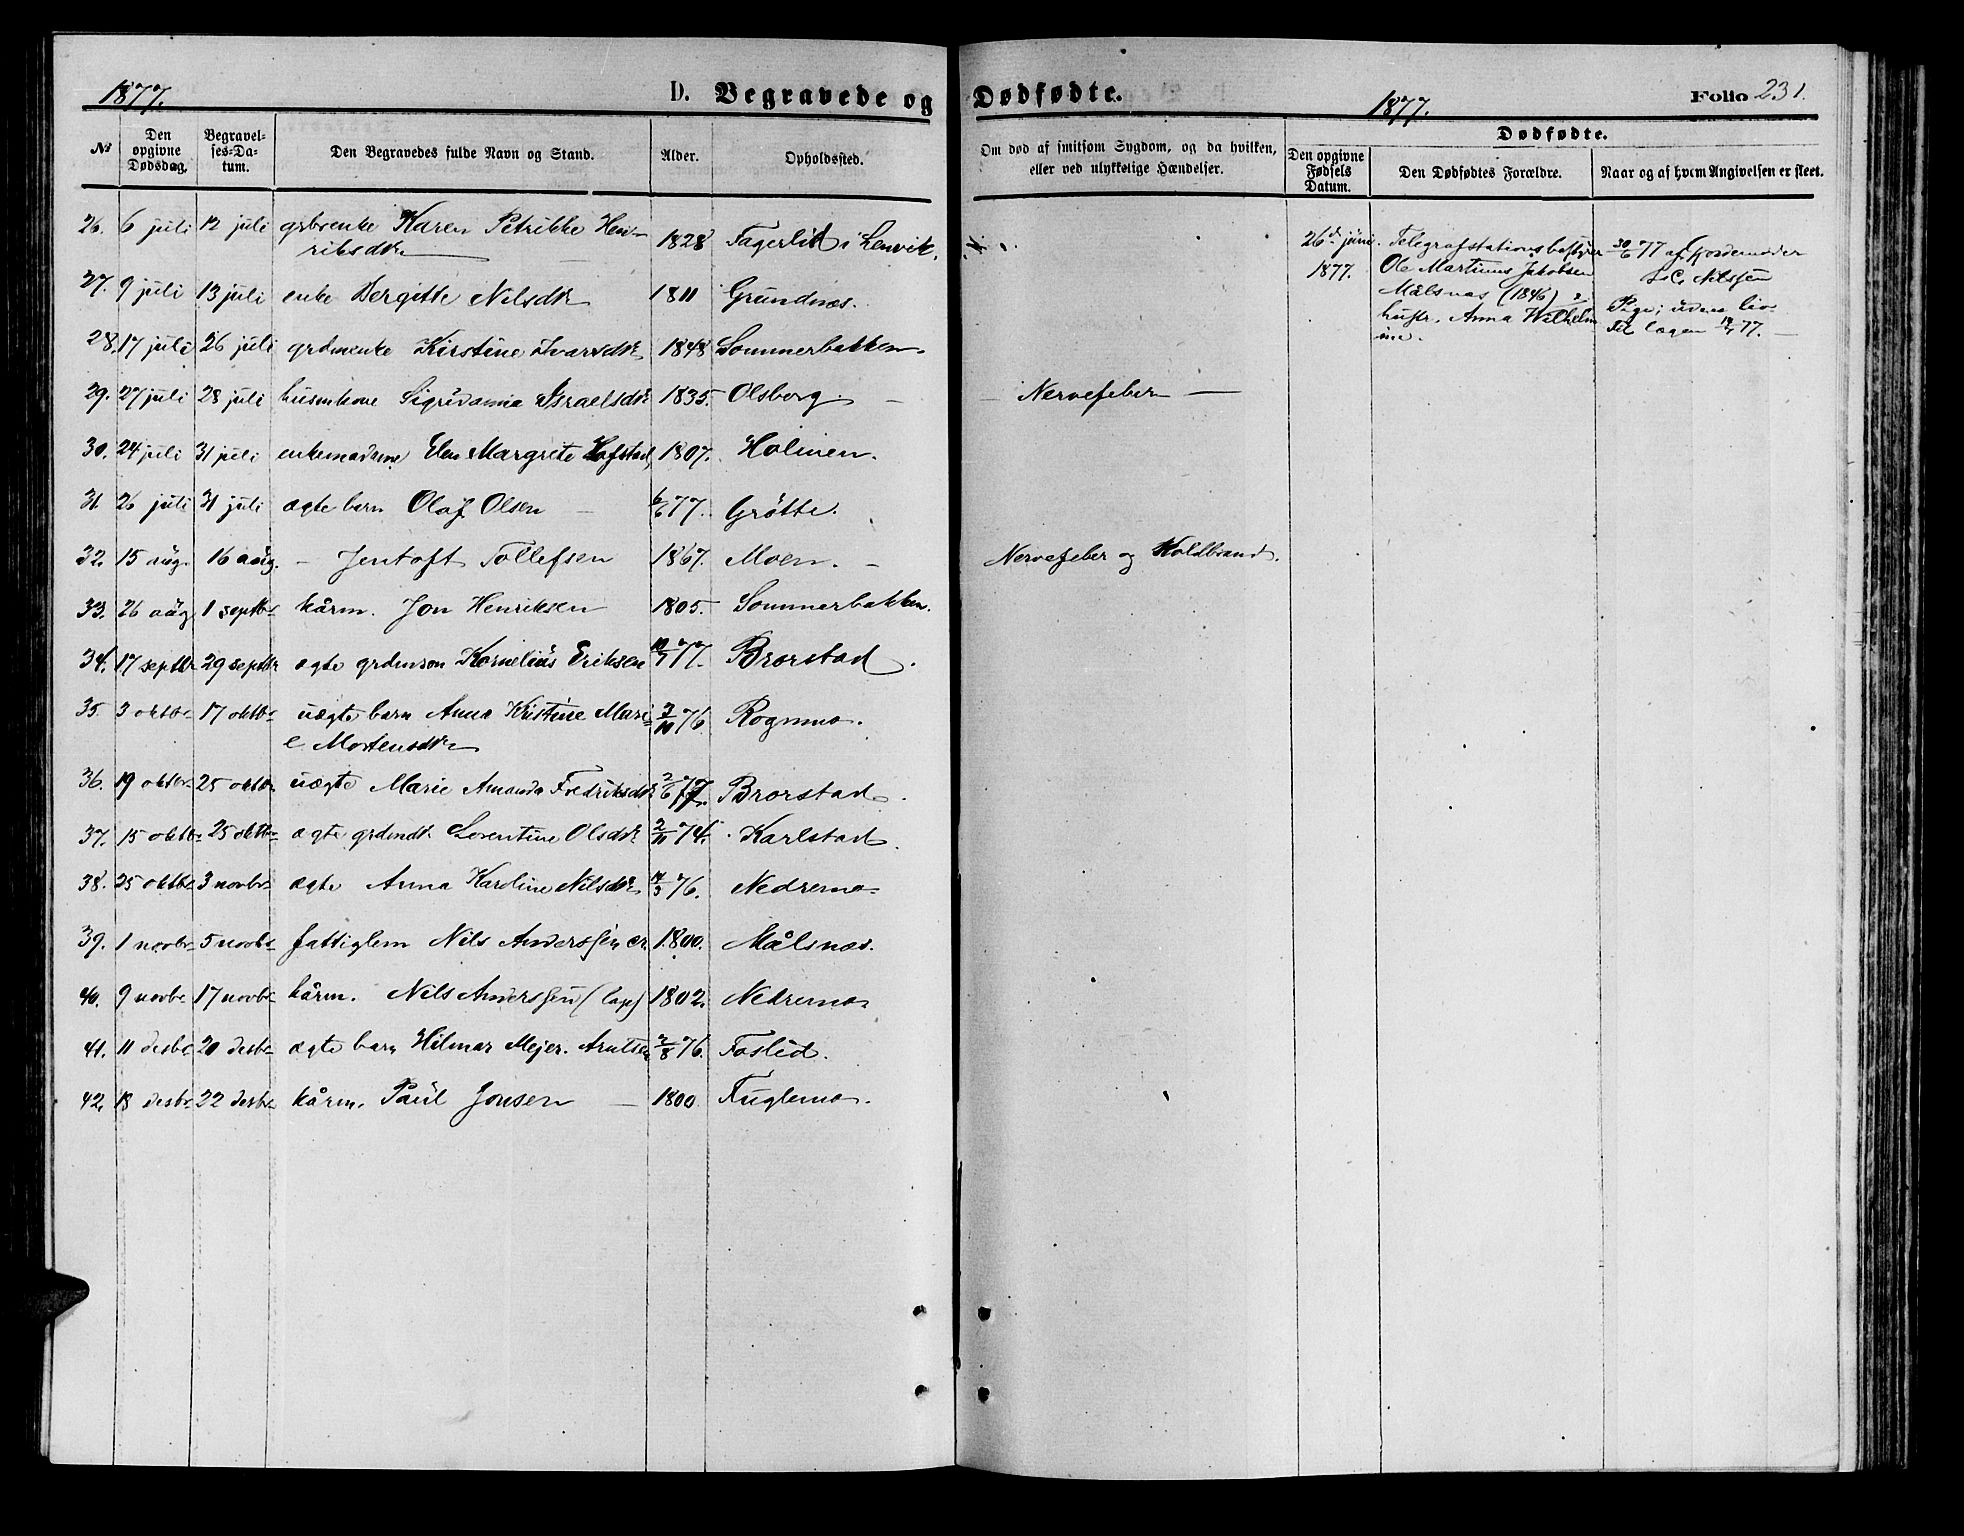 1877. D. Begravede og Dødfødte. 1877. Folio 231.
№ Den opgivne Dødsdag. Begravelses-Datum. Den Begravedes fulde Navn og Stand. Alder. Opholdssted.
Om død af smitsom Sygdom, og da hvilken, eller ved ulykkelige Hændelser. Dødfødte. Den opgivne Fødsels Datum. Den Dødfødtes Forældre. Naar og af hvem Angivelsen er skeet.
26. 6 juli 12 juli grbrenke Karen Petrikke Hen-
riksdtr 1828 Fagerlid i Lenvik.
27. 9 juli 13 juli enke Bergitte Nilsdtr 1811 Grundnæs.
28. 17 juli 26 juli grdmenke Kirstine Ivarsdtr 1848 Sommerbakken.
29. 27 juli 28 juli husmkone Sigridannia Israelsdtr 1835. Olsborg. — Nervefeber —
30. 24 juli 31 juli enkemadame Elen Margrete Hofstad, 1807. Holmen.
31 26 juli 31 juli ægte barn Olaf Olsen — 6/6 77. Grötte.
32. 15 aug. 16 aug. — Jentoft Tollefsen 1867. Moen. — Nervefeber og Koldbrand.
33. 26 aug 1 septbr kårm. Jon Henriksen 1805. Sommerbakken.
34. 17 septbr 29 septbr ægte grdmson Kornelius Eriksen 10/7 77. Brorstad.
35. 3 oktbr 17 oktbr uægte barn Anna Kristine Mari-
e Mortensdtr 3/10 76. Rognmo.
36. 19 oktbr 25 oktbr uægte Marie Amanda Fredriksdtr 2/6 77. Brorstad.
37. 15 oktbr 25 oktbr ægte grdmdtr Lorentine Olsdtr 2/11 74. Karlstad.
38. 25 oktbr 3 novbr ægte Anna Karoline Nilsdtr 14/3 76. Nedremo
39. 1 novbr 5 novbr fattiglem Nils Anderssen er 1800. Målsnæs.
40. 9 novbr 17 novbr kårm. Nils Anderssen (lap) 1802. Nedremo
41. 11 desbr 20 desbr ægte barn Hilmar Mejer. Arntsen 2/8 76. Foslid.
42. 13 desbr 22 desbr kårm. Paul Jonsen — 1800 Fuglemo.
26de juni 1877.
Telegrafstationsbestyrer
Ole Martinus Jakobsen
Målsnæs (1846) &
hustr. Anna Wilhelm-
ine.
30/6 77 af Jordemoder
L. C. Nilssen
Pige; uden liv-
77. —